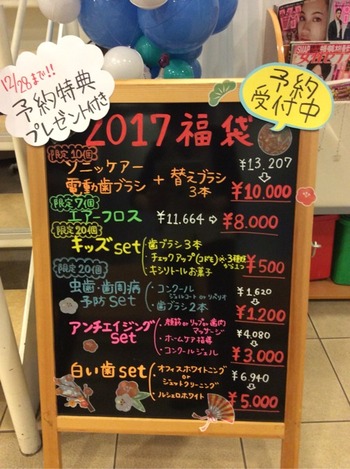 12/28まで!!
予約特典
プレゼント付き
予約
受付中
2017福袋
限定10個
ソニッケアー
電動歯ブラシ + 替えブラシ
3本
¥13.207
¥10,000
限定7個
エアーフロス ¥11.664 ⇨ ¥8.000
限定20個
キッズset
・歯ブラシ3本
・チェックアップ(こども)
・キシリトールお菓子
¥500
限定20個
虫歯・歯周病
予防set
・コンクール
ジェルコート or リペリオ
・歯ブラシ2本
¥1,620
¥1.200
アンチエイジング
set
・顔筋orリップor歯肉
マッサージ
・ホームケア指導
・コンクールジェル
¥4.080
¥3.000
白い歯set
・オフィスホワイトニング
or
ジェットクリーニング
・ルシェロホワイト
¥6.940
¥5.000